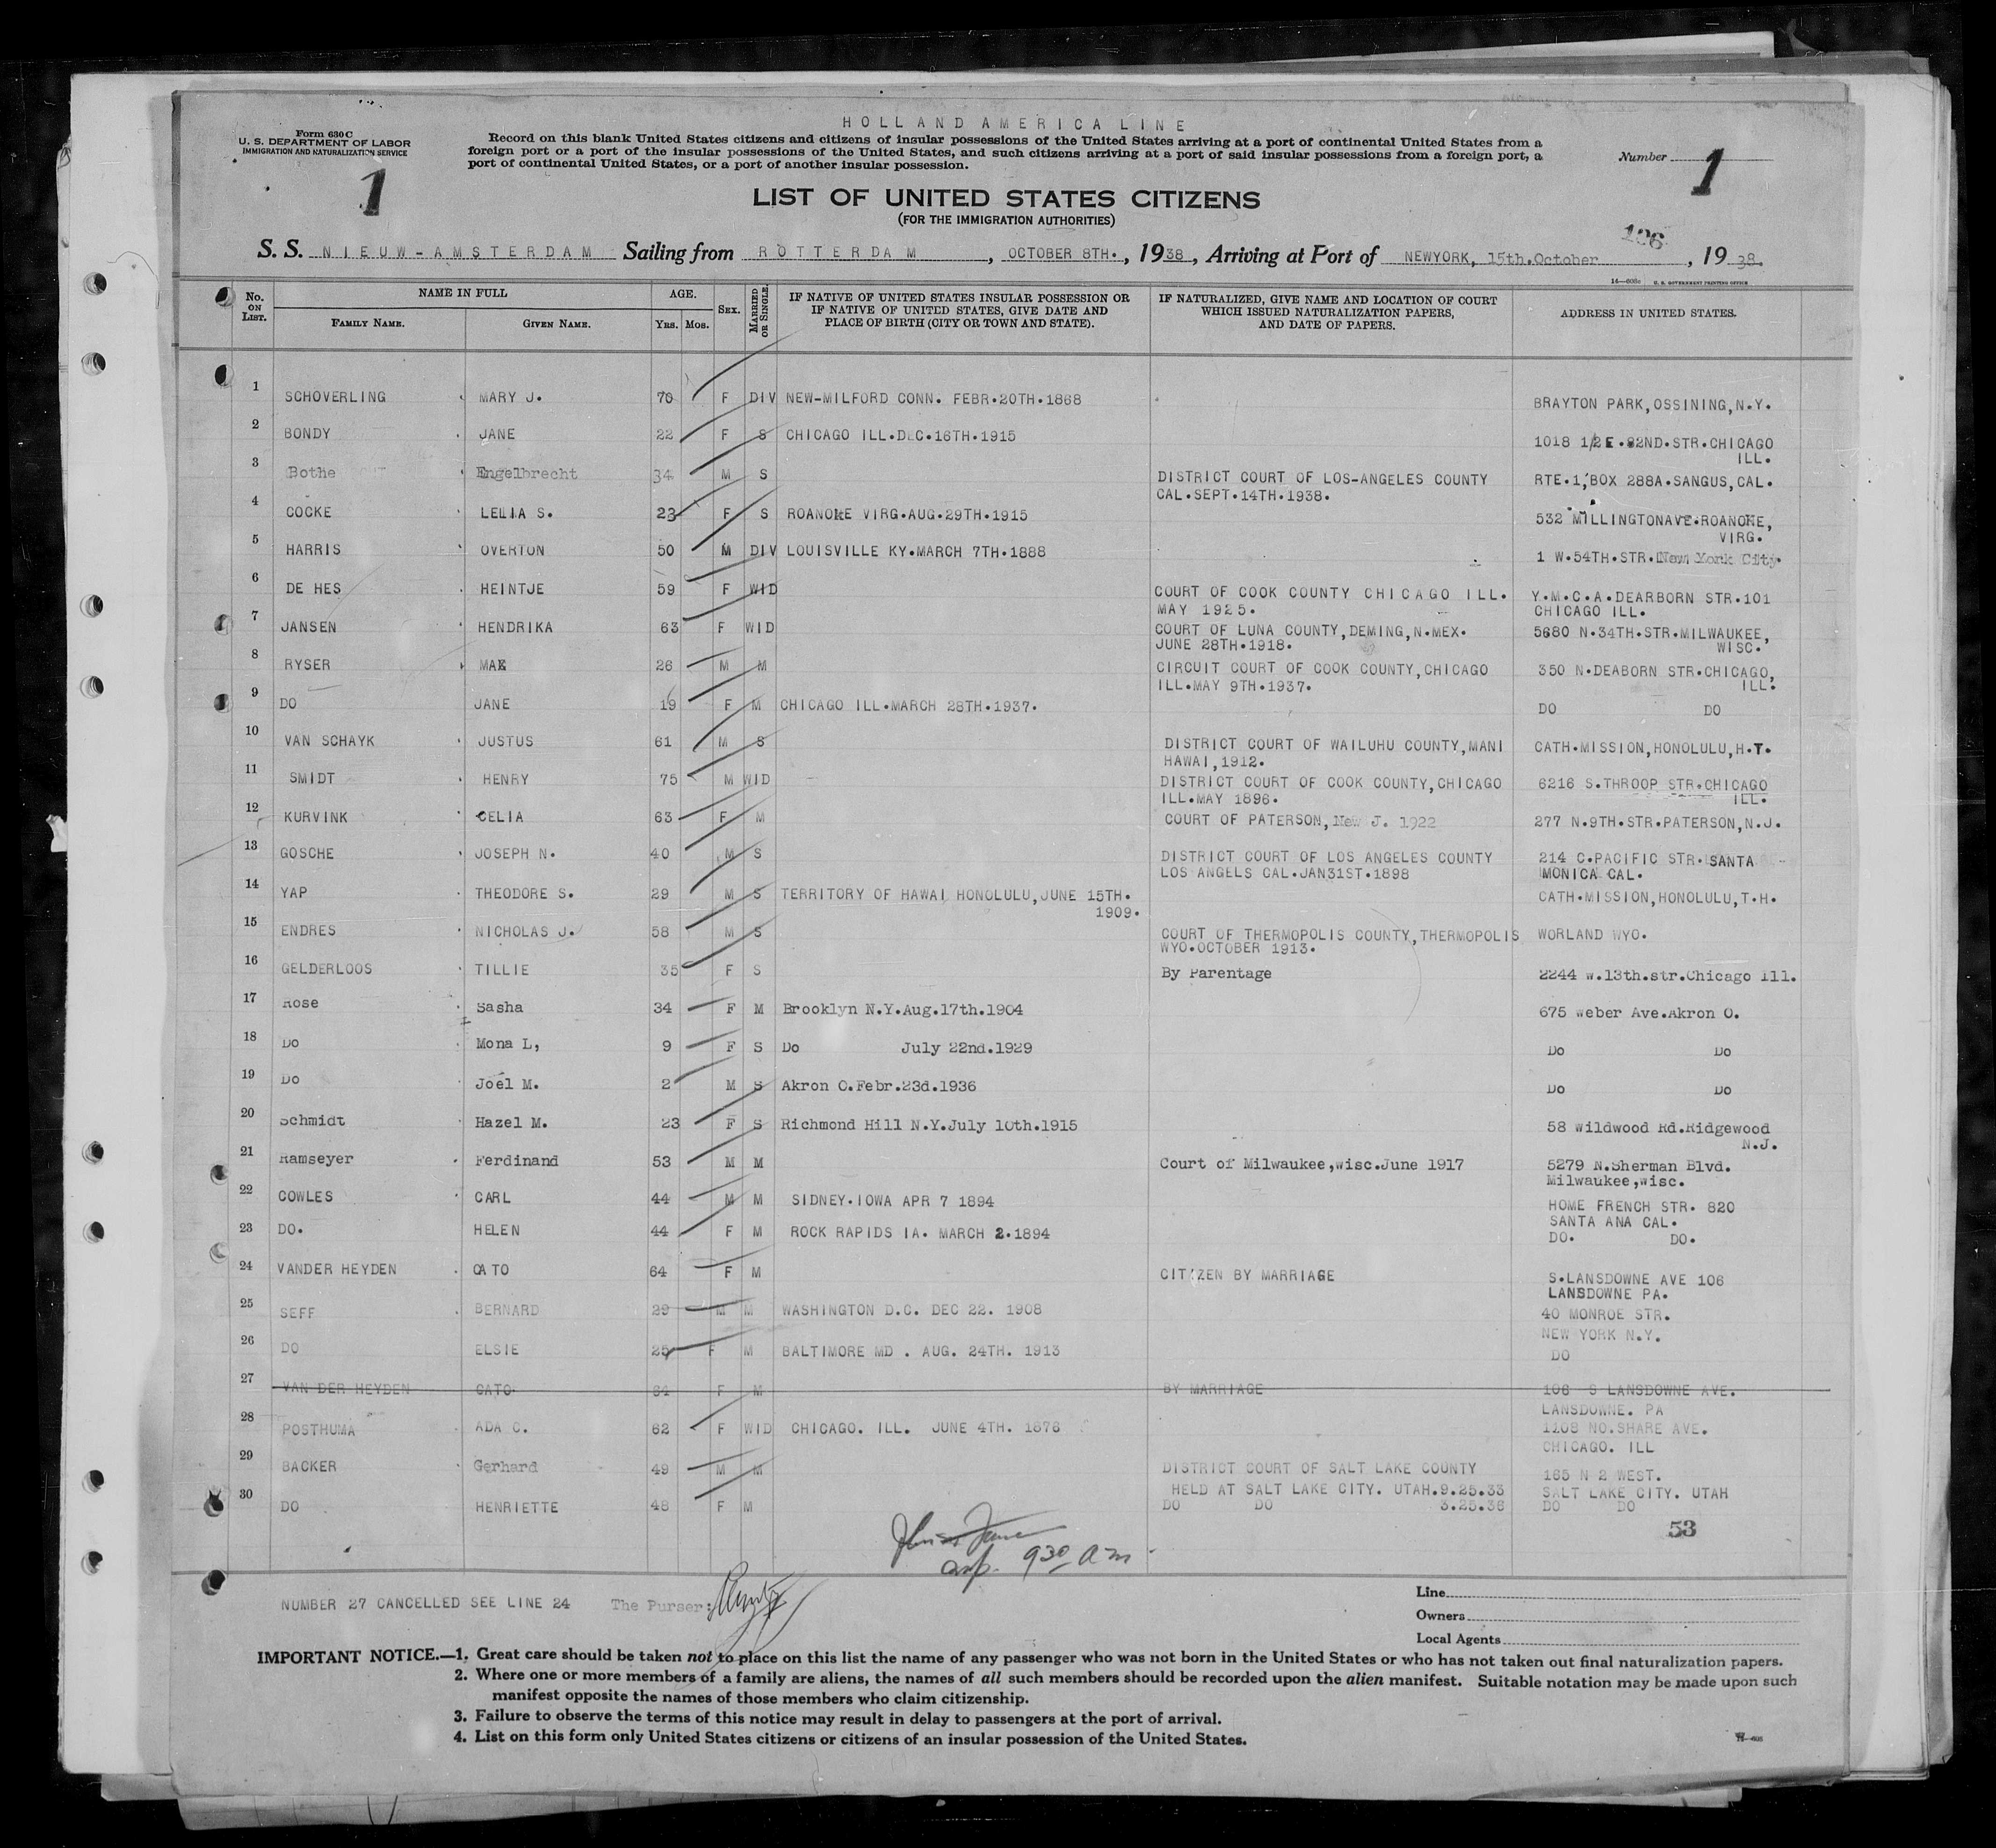 HOLLAND AMERICA LINE
Form 630 C
U. S. DEPARTMENT OF LABOR
IMMIGRATION AND NATURALIZATION SERVICE
Record on this blank United States citizens and citizens of insular possessions of the United States arriving at a port of continental United States from a
foreign port or a port of the insular possessions of the United States, and such citizens arriving at a port of said insular possessions from a foreign port, a
port of continental United States, or a port of another insular possession.
Number
1
1
LIST OF UNITED STATES CITIZENS
(FOR THE IMMIGRATION AUTHORITIES)
106
S. S. NIEUW-AMSTERDAM Sailing from ROTTERDAM, OCTOBER 8TH., 1938, Arriving at Port of NEWYORK, 15th.October, 1938.
14—608c U. S. GOVERNMENT PRINTING OFFICE
No. ON LIST. NAME IN FULL FAMILY NAME. GIVEN NAME. AGE. YRS. MOS. SEX. MARRIED OR SINGLE. IF NATIVE OF UNITED STATES INSULAR POSSESSION OR IF NATIVE OF UNITED STATES, GIVE DATE AND PLACE OF BIRTH (CITY OR TOWN AND STATE). IF NATURALIZED, GIVE NAME AND LOCATION OF COURT WHICH ISSUED NATURALIZATION PAPERS, AND DATE OF PAPERS. ADDRESS IN UNITED STATES.
1 SCHOVERLING MARY J. 70 F DIV NEW-MILFORD CONN. FEBR.20TH.1868 BRAYTON PARK,OSSINING,N.Y.
2 BONDY JANE 22 F S CHICAGO ILL.DEC.16TH.1915 1018 1/2E.82ND.STR.CHICAGO
ILL.
3 Bothe Engelbrecht 34 M S DISTRICT COURT OF LOS-ANGELES COUNTY RTE.1,BOX 288A.SANGUS,CAL.
CAL.SEPT.14TH.1938.
4 COCKE LELIA S. 23 F S ROANOKE VIRG.AUG.29TH.1915 532 MILLINGTONAVE.ROANOKE,
VIRG.
5 HARRIS OVERTON 50 M DIV LOUISVILLE KY.MARCH 7TH.1888 1 W.54TH.STR.New York City.
6 DE HES HEINTJE 59 F WID COURT OF COOK COUNTY CHICAGO ILL. Y.M.C.A.DEARBORN STR.101
MAY 1925. CHICAGO ILL.
7 JANSEN HENDRIKA 63 F WID COURT OF LUNA COUNTY,DEMING,N.MEX. 5680 N.34TH.STR.MILWAUKEE,
JUNE 28TH.1918. WISC.
8 RYSER MAX 26 M M CIRCUIT COURT OF COOK COUNTY,CHICAGO 350 N.DEABORN STR.CHICAGO,
ILL.MAY 9TH.1937. ILL.
9 DO JANE 19 F M CHICAGO ILL.MARCH 28TH.1937. DO DO
10 VAN SCHAYK JUSTUS 61 M S DISTRICT COURT OF WAILUHU COUNTY,MANI CATH.MISSION,HONOLULU,H.T.
HAWAI,1912.
11 SMIDT HENRY 75 M WID DISTRICT COURT OF COOK COUNTY,CHICAGO 6216 S.THROOP STR.CHICAGO
ILL.MAY 1896. ILL.
12 KURVINK CELIA 63 F M COURT OF PATERSON,New J. 1922 277 N.9TH.STR.PATERSON,N.J.
13 GOSCHE JOSEPH N. 40 M S DISTRICT COURT OF LOS ANGELES COUNTY 214 C.PACIFIC STR.SANTA
LOS ANGELS CAL.JAN31ST.1898 MONICA CAL.
14 YAP THEODORE S. 29 M S TERRITORY OF HAWAI HONOLULU,JUNE 15TH. CATH.MISSION,HONOLULU,T.H.
1909.
15 ENDRES NICHOLAS J. 58 M S COURT OF THERMOPOLIS COUNTY,THERMOPOLIS WORLAND WYO.
WYO.OCTOBER 1913.
16 GELDERLOOS TILLIE 35 F S By Parentage 2244 W.13th.str.Chicago Ill.
17 Rose Sasha 34 F M Brooklyn N.Y.Aug.17th.1904 675 Weber Ave.Akron O.
18 Do Mona L, 9 F S Do July 22nd.1929 Do Do
19 Do Joel M. 2 M S Akron O.Febr.23d.1936 Do Do
20 Schmidt Hazel M. 23 F S Richmond Hill N.Y.July 10th.1915 58 Wildwood Rd.Ridgewood
N.J.
21 Ramseyer Ferdinand 53 M M Court of Milwaukee,wisc.June 1917 5279 N.Sherman Blvd.
Milwaukee,wisc.
22 COWLES CARL 44 M M SIDNEY.IOWA APR 7 1894 HOME FRENCH STR. 820
SANTA ANA CAL.
23 DO. HELEN 44 F M ROCK RAPIDS IA. MARCH 2.1894 DO. DO.
24 VANDER HEYDEN CATO 64 F M CITIZEN BY MARRIAGE S.LANSDOWNE AVE 106
LANSDOWNE PA.
25 SEFF BERNARD 29 M M WASHINGTON D.C. DEC 22. 1908 40 MONROE STR.
NEW YORK N.Y.
26 DO ELSIE 25 F M BALTIMORE MD . AUG. 24TH. 1913 DO
27 VAN DER HEYDEN CATO 64 F M BY MARRIAGE 106 S LANSDOWNE AVE.
LANSDOWNE. PA
28 POSTHUMA ADA C. 62 F WID CHICAGO. ILL. JUNE 4TH. 1876 1108 NO.SHARE AVE.
CHICAGO. ILL
29 BACKER Gerhard 49 M M DISTRICT COURT OF SALT LAKE COUNTY 165 N 2 WEST.
HELD AT SALT LAKE CITY. UTAH.9.25.33 SALT LAKE CITY. UTAH
30 DO HENRIETTE 48 F M DO DO 3.25.36 DO DO
53
9 30 am
NUMBER 27 CANCELLED SEE LINE 24 The Purser:
Line
Owners
Local Agents
IMPORTANT NOTICE.—1. Great care should be taken not to place on this list the name of any passenger who was not born in the United States or who has not taken out final naturalization papers.
2. Where one or more members of a family are aliens, the names of all such members should be recorded upon the alien manifest. Suitable notation may be made upon such
manifest opposite the names of those members who claim citizenship.
3. Failure to observe the terms of this notice may result in delay to passengers at the port of arrival.
4. List on this form only United States citizens or citizens of an insular possession of the United States.